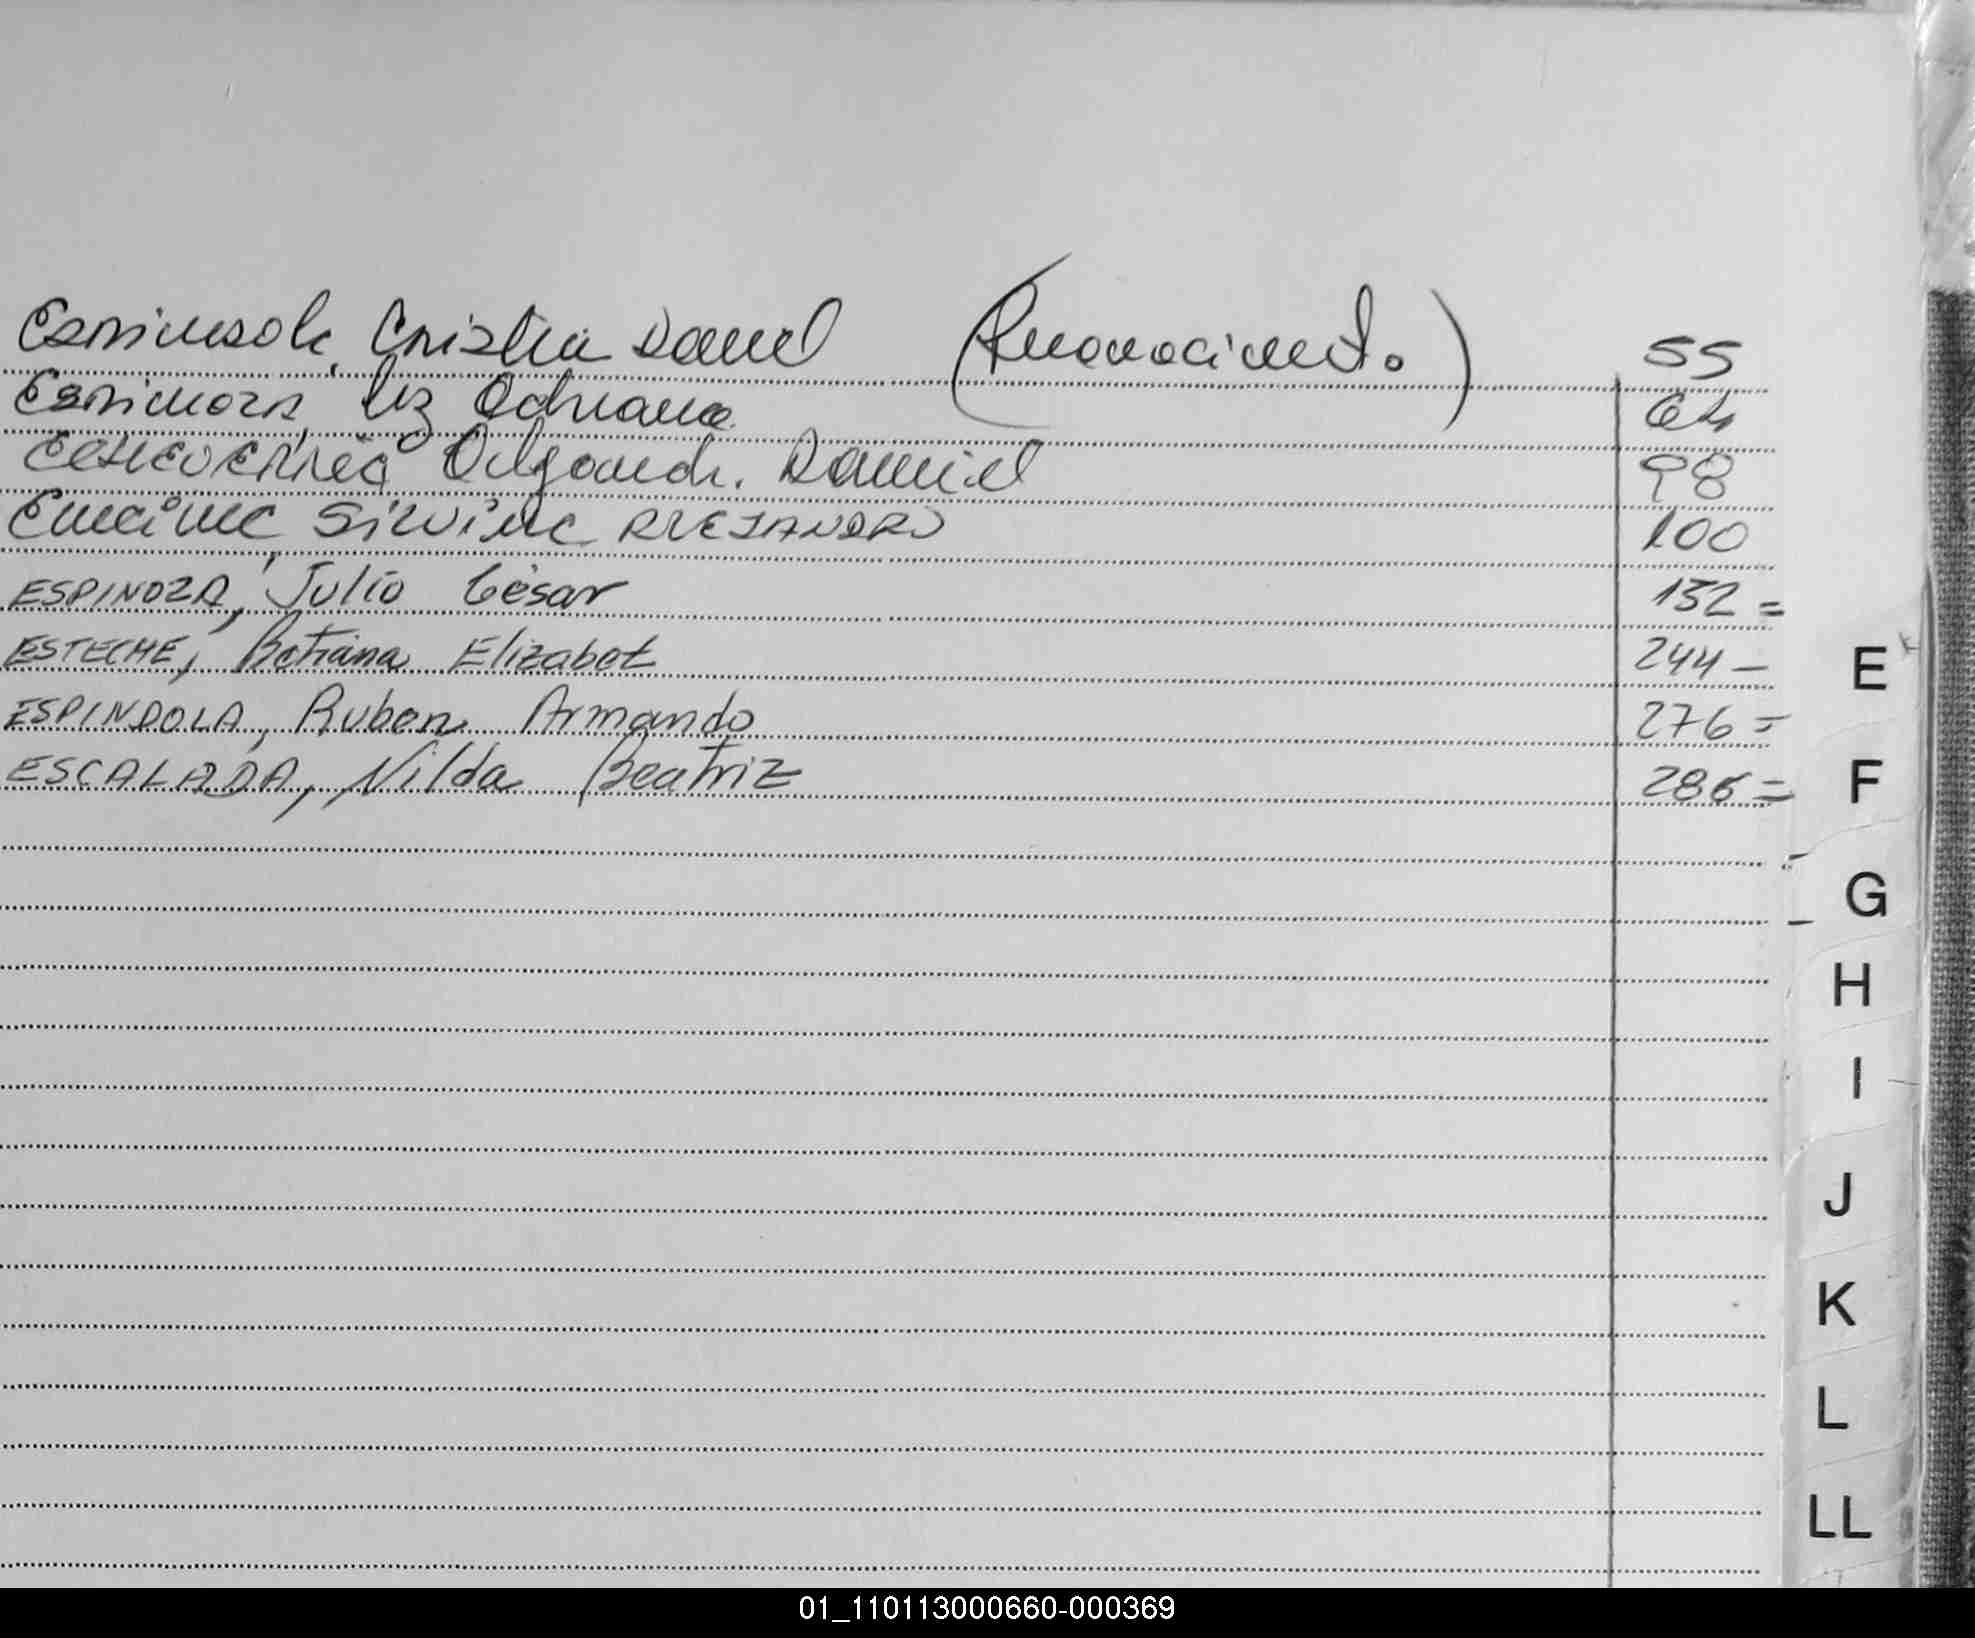 Espindola, Cristian Daniel (Reconocimiento) 55
Espinoza, Luz Adriana 64
Echeverria Alejandro Damiel 98
Encina Silvina ALEJANDRA 100
ESPINOZA, Julio César 132 =
ESTECHE, Betiana Elizabet 244 -
ESPINDOLA, Ruben Armando 276 =
ESCALADA, Nilda Beatriz 286 =
E
F
G
H
I
J
K
L
LL
01_110113000660-000369